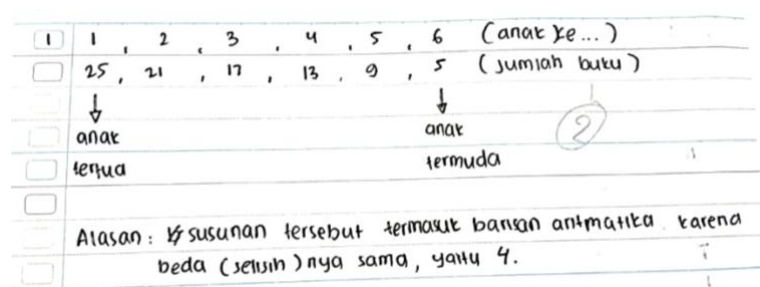 1 1 , 2 , 3 , 4 , 5 , 6 (anak ke...)
25 , 21 , 17 , 13 , 9 , 5 (Jumlah buku)
↓ ↓
anak anak 2
tertua termuda
Alasan : susunan tersebut termasuk barisan aritmatika karena
beda (selisih)nya sama, yaitu 4.